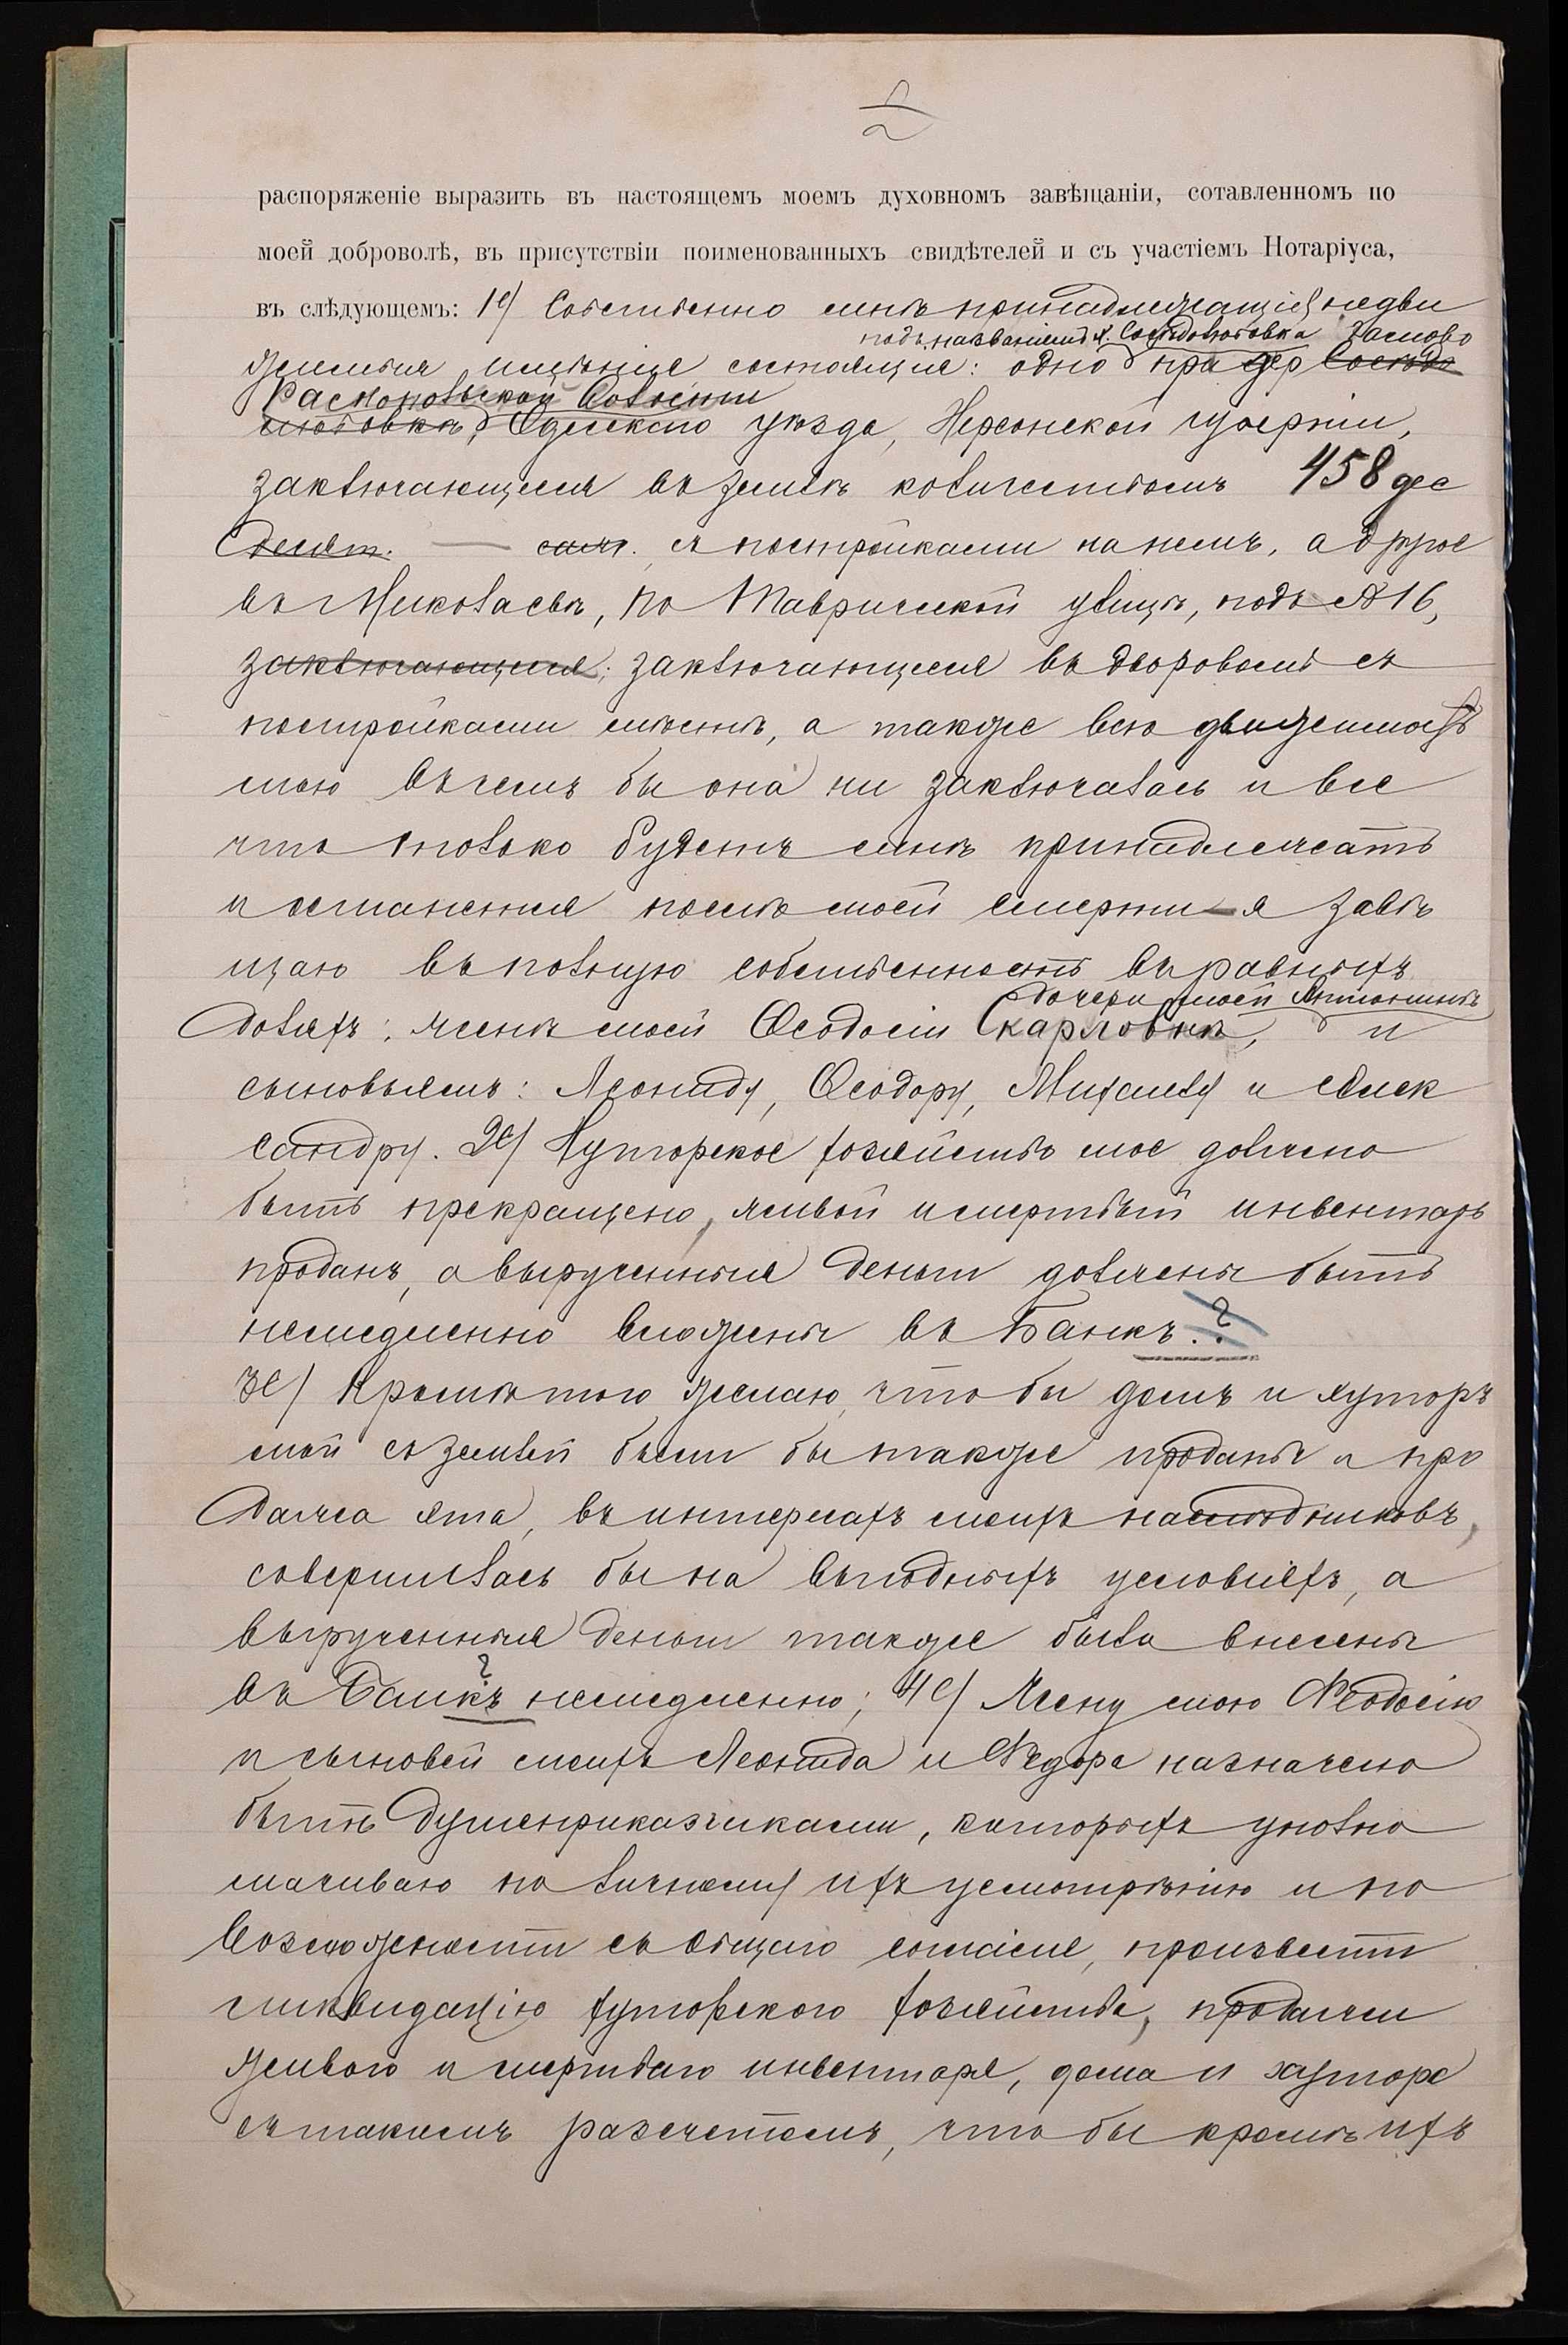 2
распоряженіе выразить въ настоящемъ моемъ духовномъ завѣщаніи, сотавленномъ по
моей доброволѣ, въ присутствіи поименованныхъ свидѣтелей и съ участіемъ Нотаріуса,
въ слѣдующемъ: 1е) Собственно мнѣ принадлежащія недви
подъ названіемъ х.
жимыя имѣнія состоящія: одно при дер
Расноповьской Волости
Одесскаго уѣзда, Херсонской губерніи,
заключающееся въ землѣ количествомъ 458 дес
десят. — саж. съ постройками на немъ, а другое
въ Николаевѣ, по Таврической улицѣ, подъ № 16,
заключающееся; заключающееся въ дворовомъ съ
постройками мѣстѣ, а также всю движимость
мою въ чемъ бы она ни заключалась и все
что только будетъ мнѣ принадлежать
и останется послѣ моей смерти — я завѣ
щаю въ полную собственность въ равныхъ
дочери моей Антонинѣ
доляхъ: женѣ моей Ѳеодосіи Карловнѣ, и
сыновьямъ: Леониду, Ѳеодору, Михаилу и Алек
сандру. 2е) Хуторское хозяйство мое должно
быть прекращено, живой и мертвый инвентарь
проданъ, а вырученныя деньги должны быть
немедленно вложены въ Банкъ. ?
3е) Кромѣ того желаю, что бы домъ и хуторъ
мой съ землей были бы также проданы и про
дажа эта, въ интересахъ моихъ наслѣдниковъ,
совершилась бы на выгодныхъ условіяхъ, а
вырученныя деньги также была внесены
?
въ Банкъ немедленно; 4е) Жену мою Ѳеодосію
и сыновей моихъ Леонида и Ѳедора назначено
быть душеприказчиками, которыхъ уполно
мачиваю по личному ихъ усмотрѣнію и по
возможности съ общаго согласія, произвести
ликвидацію хуторского хозяйства, продажи
живого и мертваго инвентаря, дома и хутора
съ такимъ разсчетомъ, что бы кромѣ ихъ